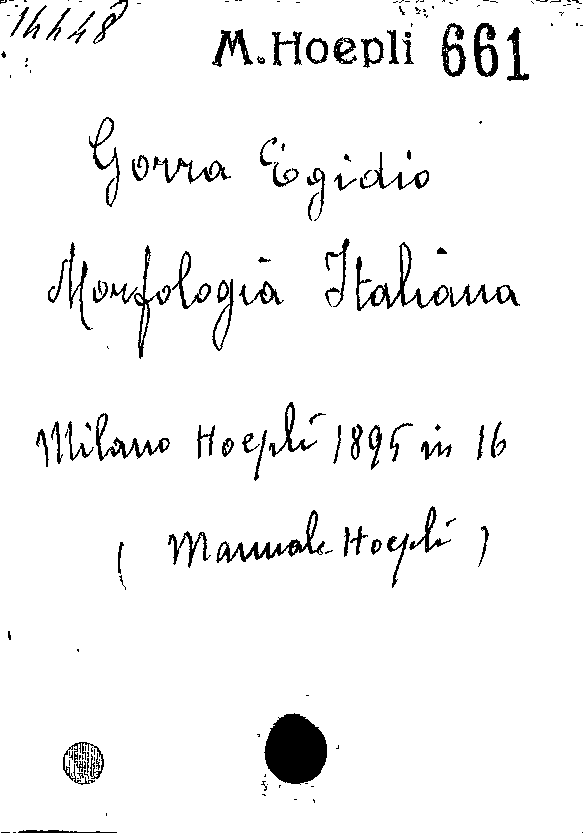 14448
M. Hoepli 661
Gorra Egidio
Morfologia Italiana
Milano Hoepli 1895 in 16
( Manuale Hoepli )